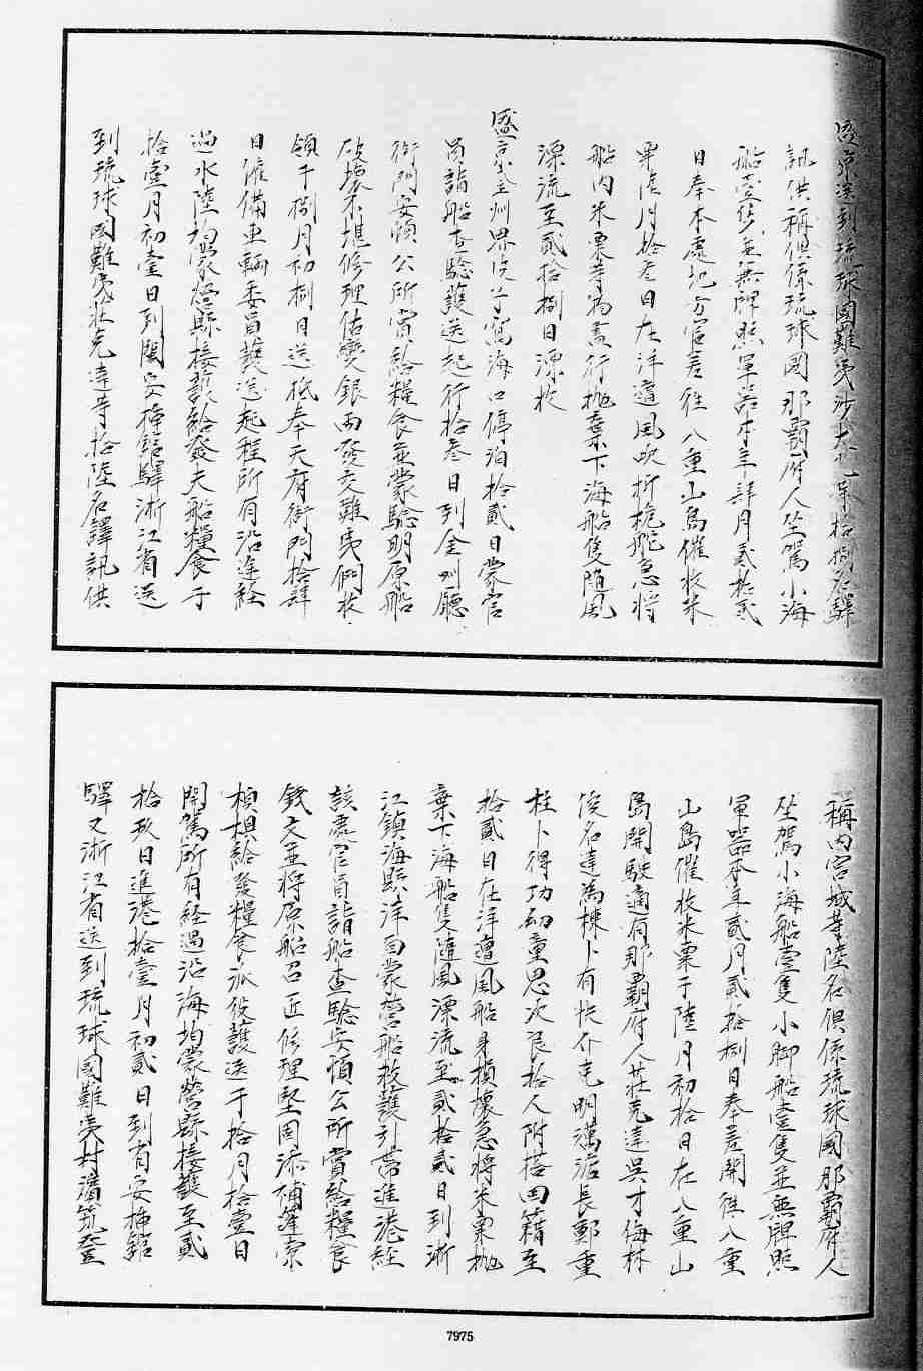 盛京送到琉球國難夷沙大 等拾捌名驛
訊供稱俱係琉球國那霸府人坐駕小海
船壹隻並無牌照軍器本年肆月貳拾貳
日奉本處地方官差往八重山島催收米
粟陸月拾叁日在洋遭風吹折桅舵急將
船內米粟等物盡行拋棄下海船隻隨風
漂流至貳拾捌日漂收
盛京金州界 海口停泊拾貳日蒙官
員詣船查驗護送起行拾叁日到金州廳
衙門安頓公所賞給糧食並蒙驗明原船
破壞不堪修理估變銀兩發交難夷們收
領于捌月初捌日送抵奉天府衙門拾肆
日僱備車輛委員護送起程所有沿途經
過水陸均蒙營縣接護給發夫船糧食于
拾壹月初壹日到閩安插館驛浙江省送
到琉球國難夷莊克達等拾陸名譯訊供
稱內宮城等陸名俱係琉球國那霸府人
坐駕小海船壹隻小脚船壹隻並無牌照
軍器本年貳月貳拾捌日奉差開往八重
山島催收米粟于陸月初拾日在八重山
島開駛適有那霸府人莊克達吳才侮林
俊名達為棟卜有 介克明 長鄭重
柱卜得功幼童思次良拾人附搭回籍至
拾貳日在洋遭風船身損壞急將米粟拋
棄下海船隻隨風漂流至貳拾貳日到浙
江鎮海縣洋面蒙營船救護引帶進港經
該處官員詣船查驗安頓公所賞給糧食
錢文並將原船召匠修理堅固添補篷索
槓棋給發糧食派役護送于拾月拾壹日
開駕所有經過沿海均蒙營縣接護至貳
拾玖日進港拾壹月初貳日到省安插館
驛又浙江省送到琉球國難夷村濱筑登
7975